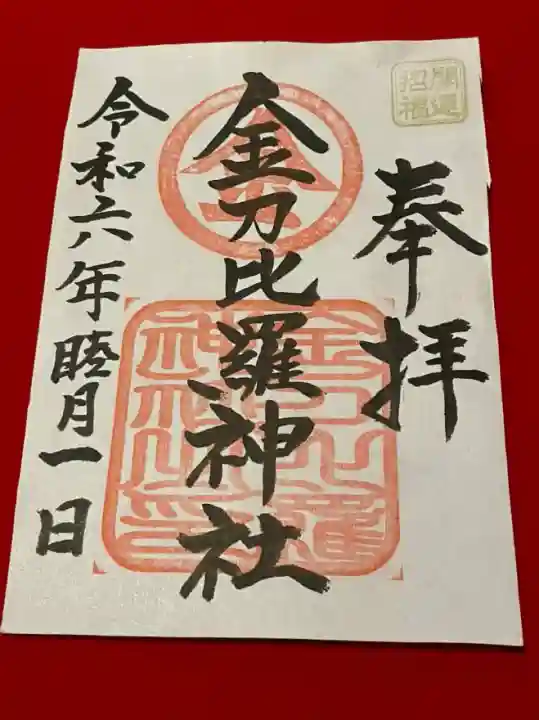 開運
招福
奉拝
金刀比羅神社
令和六年睦月一日